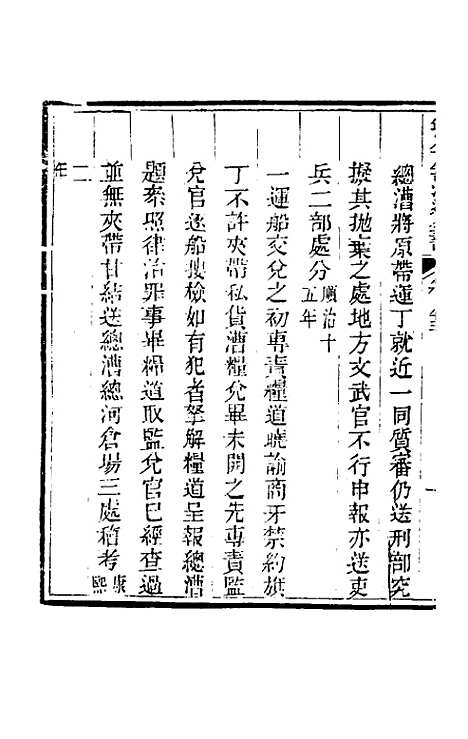 總漕將原帶運丁就近一同質審仍送刑部究
擬其拋棄之處地方文武官不行申報亦送吏
兵二部處分順治十五年
一運船交兌之初專責糧道曉諭商牙禁約旗
丁不許夾帶私貨漕糧兌畢未開之先專責監
兌官逐船搜檢如有犯者拏解糧道呈報總漕
題叅照律治罪事畢糧道取監兌官已經查過
並無夾帶甘結送總漕總河倉場三處稽考康熙
二年